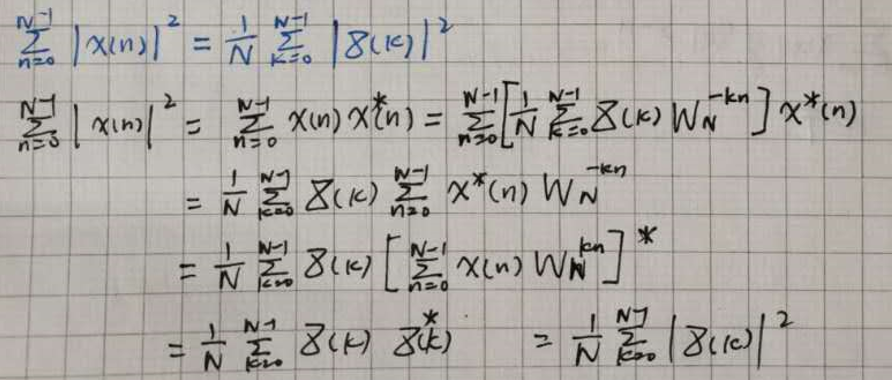 ∑_{n=0}^{N-1} |x(n)|^2 = 1/N ∑_{k=0}^{N-1} |X(k)|^2
∑_{n=0}^{N-1} |x(n)|^2 = ∑_{n=0}^{N-1} x(n) x^*(n) = ∑_{n=0}^{N-1} [1/N ∑_{k=0}^{N-1} X(k) W_N^{-kn}] x^*(n)
= 1/N ∑_{k=0}^{N-1} X(k) ∑_{n=0}^{N-1} x^*(n) W_N^{-kn}
= 1/N ∑_{k=0}^{N-1} X(k) [∑_{n=0}^{N-1} x(n) W_N^{kn}]^*
= 1/N ∑_{k=0}^{N-1} X(k) X^*(k) = 1/N ∑_{k=0}^{N-1} |X(k)|^2